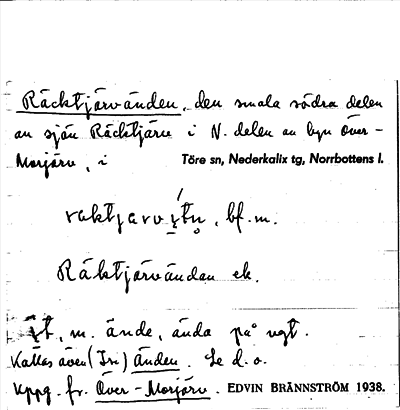 Räcktjärvänden, den smala södra delen
av sjön Räcktjärv i N. delen av byn Över-
Morjärv, i Töre sn, Nederkalix tg, Norrbottens l.
bf. m.
Räktjärvändan ek.
m. ände, ända på ngt.
Kallas även (In) Änden. Se d. o.
Uppg. fr. Över-Morjärv. EDVIN BRÄNNSTRÖM 1938.